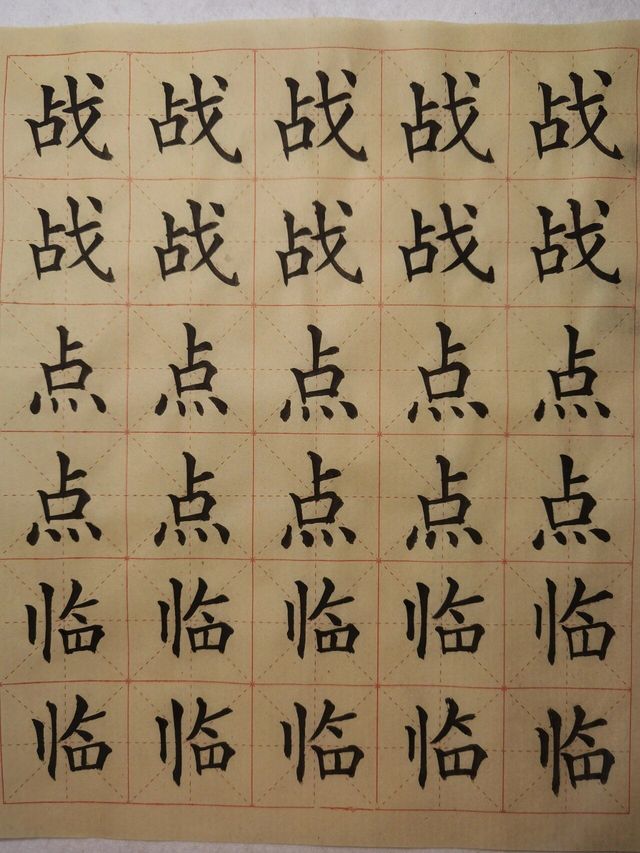 战战战战战
战战战战战
点点点点点
点点点点点
临临临临临
临临临临临